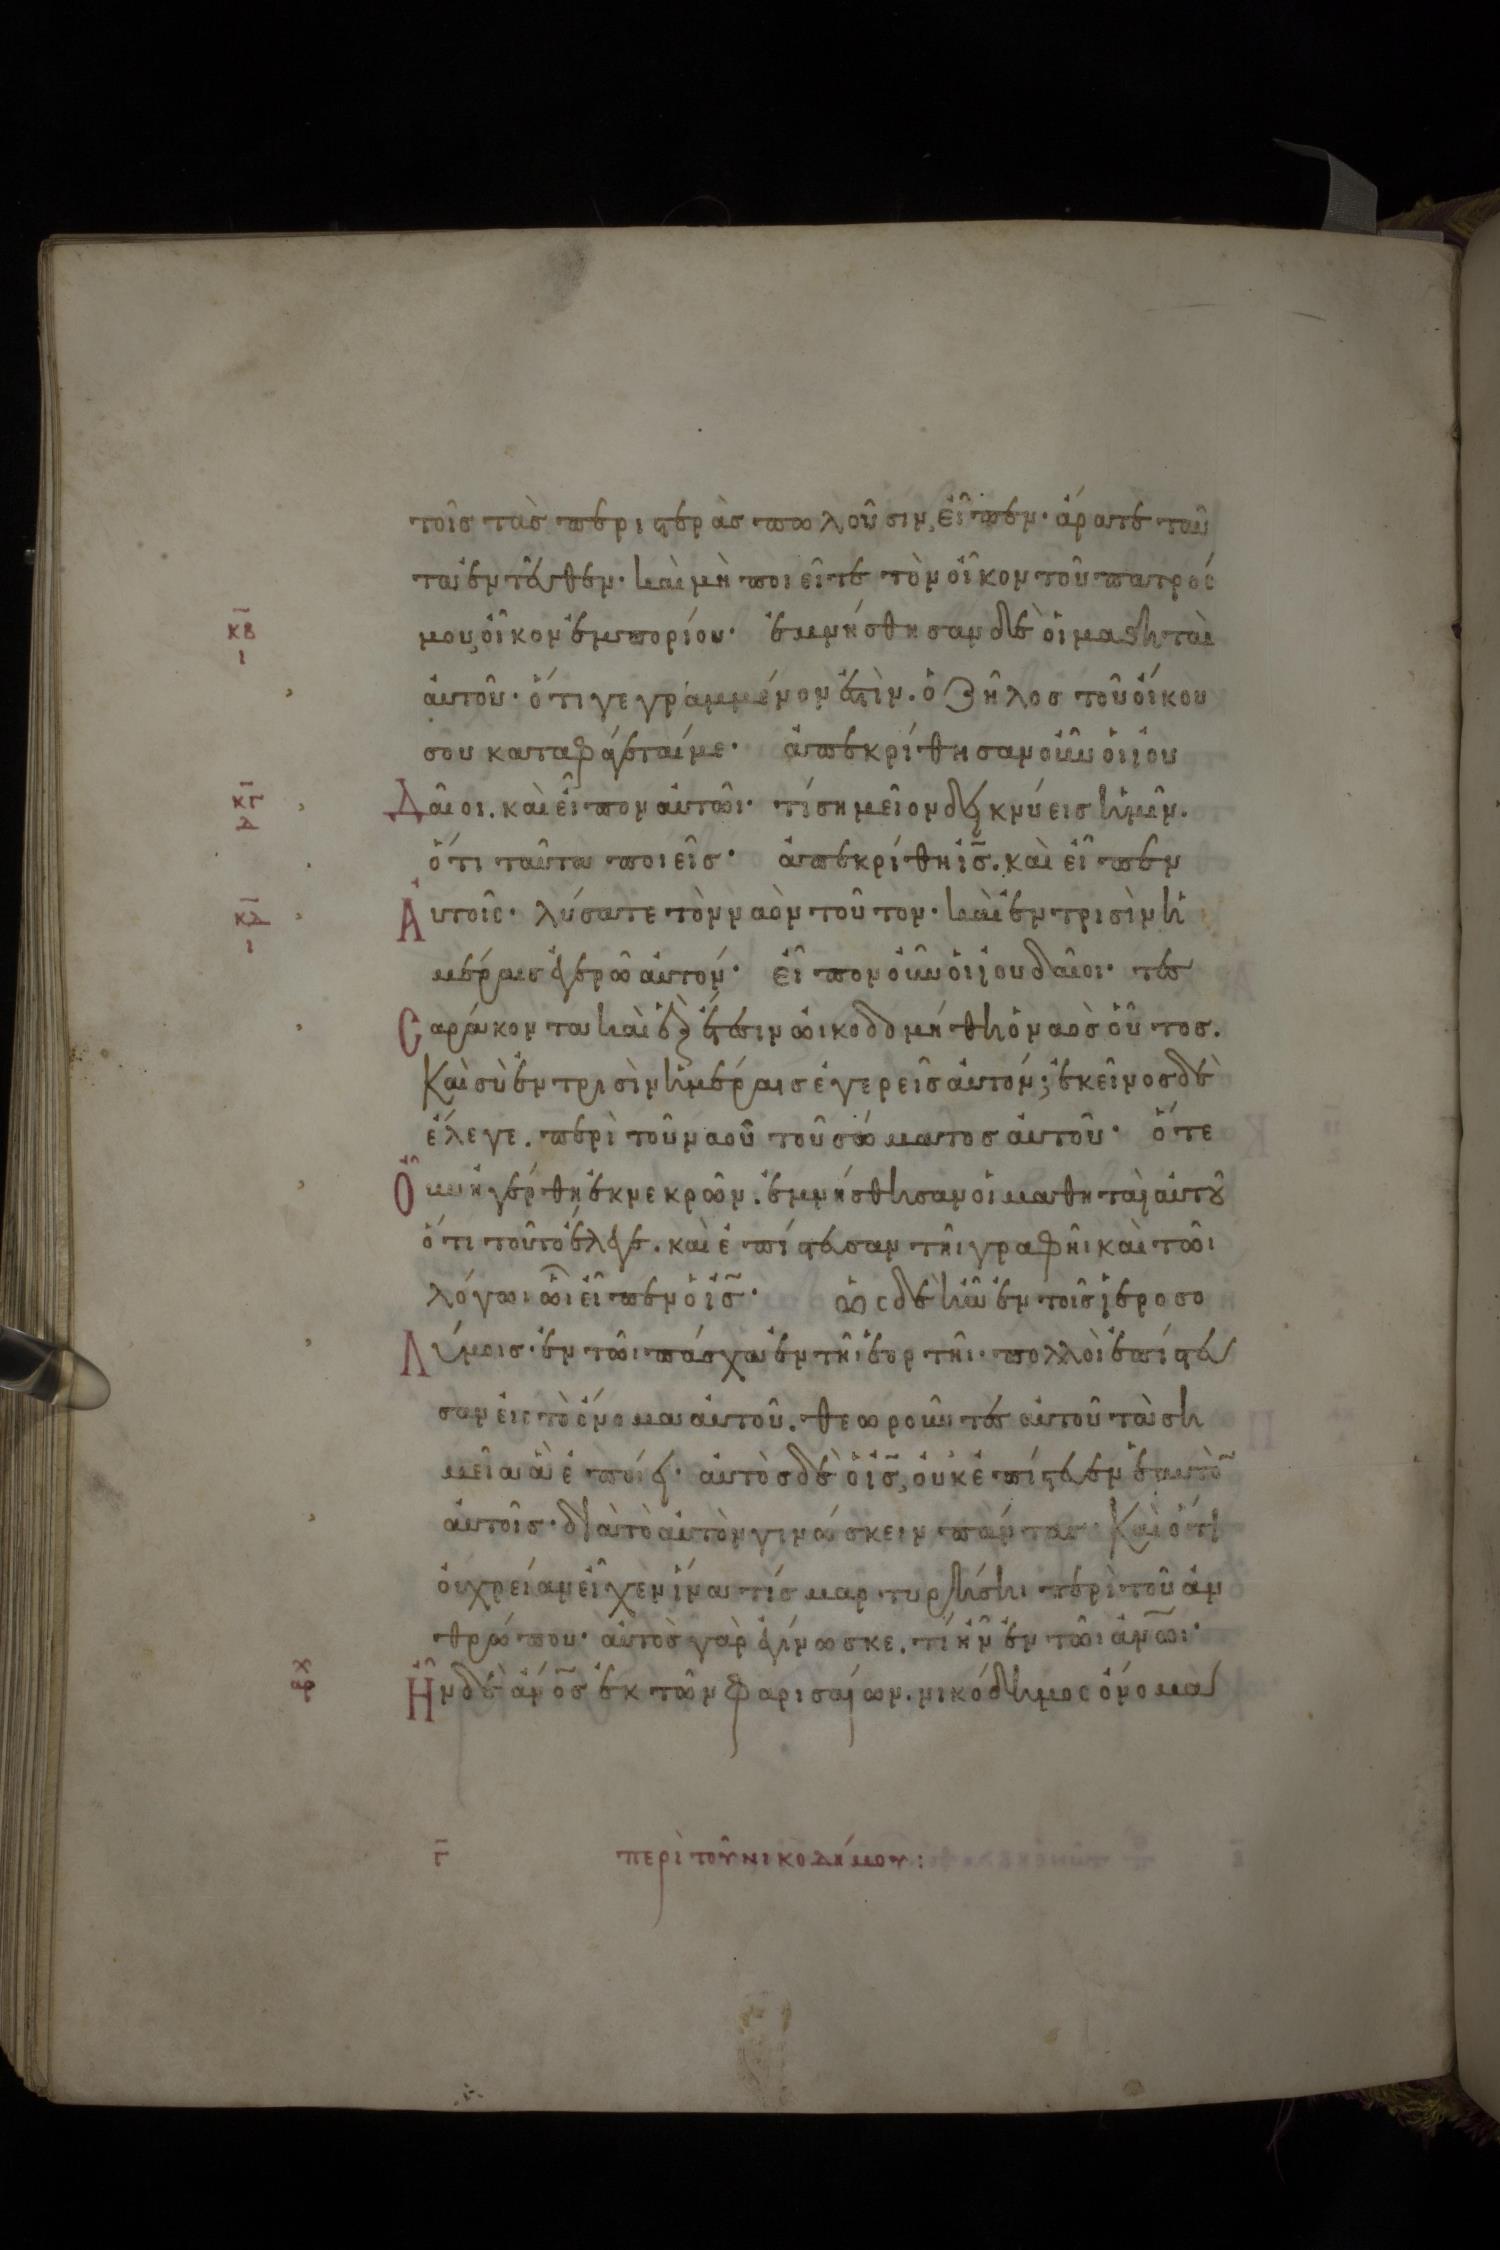 τοῖς τὰς περιστερὰς πωλοῦσιν, εἶπεν· ἄρατε ταῦ
τα ἐντεῦθεν· καὶ μὴ ποιεῖτε τὸν οἶκον τοῦ πατρός
κβ ι μου, οἶκον ἐμπορίου· ἐμνήσθησαν δὲ οἱ μαθηταὶ
αὐτοῦ· ὅτι γεγραμμένον ἐστὶν· ὁ ζῆλος τοῦ οἴκου
σου καταφάγεταί με· ἀπεκρίθησαν οὖν οἱ ἰου
κγ δ Δαῖοι. καὶ εἶπον αὐτῶι· τί σημεῖον δεικνύεις ἡμῖν.
ὅτι ταῦτα ποιεῖς· ἀπεκρίθη ἰς̅. καὶ εἶπεν
κδ ι Αὐτοῖς· λύσατε τὸν ναὸν τοῦτον· καὶ ἐν τρισὶν ἡ
μέραις ἐγερῶ αὐτόν· εἶπον οὖν οἱ ἰουδαῖοι· τεσ
Σαράκοντα καὶ ἓξ ἔτεσιν ὠικοδομήθη ὁ ναὸς οὗτος.
Καὶ σὺ ἐν τρισὶν ἡμέραις ἐγερεῖς αὐτόν; ἐκεῖνος δὲ
ἔλεγε. περὶ τοῦ ναοῦ τοῦ σώματος αὐτοῦ· ὅτε
Οὖν ἠγέρθη ἐκ νεκρῶν. ἐμνήσθησαν οἱ μαθηταὶ αὐτοῦ
ὅτι τοῦτο ἔλεγε. καὶ ἐπίστευσαν τῆι γραφῆι καὶ τῶι
λόγωι ὧι εἶπεν ὁ ἰς̅· ὡς δὲ ἦν ἐν τοῖς ἱεροσο
Λύμοις· ἐν τῶι πάσχα ἐν τῆι ἑορτῆι· πολλοὶ ἐπίστευ
σαν εἰς τὸ ὄνομα αὐτοῦ. θεωροῦντες αὐτοῦ τὰ ση
μεῖα ἃ ἐποίει· αὐτὸς δὲ ὁ ἰς̅, οὐκ ἐπίστευεν ἑαυτὸ̅
αὐτοῖς· διὰ τὸ αὐτὸν γινώσκειν πάντας· Καὶ ὅτι
οὐ χρείαν εἶχεν ἵνα τίς μαρτυρήσηι περὶ τοῦ ἀν
θρώπου· αὐτὸς γὰρ ἐγίνωσκε. τί ἦν ἐν τῶι ἀν̅ωι·
Ἦν δὲ ἄν̅ος ἐκ τῶν φαρισαίων. νικόδημος ὄνομα
γ̅ περὶ τοῦ νικοδήμου: